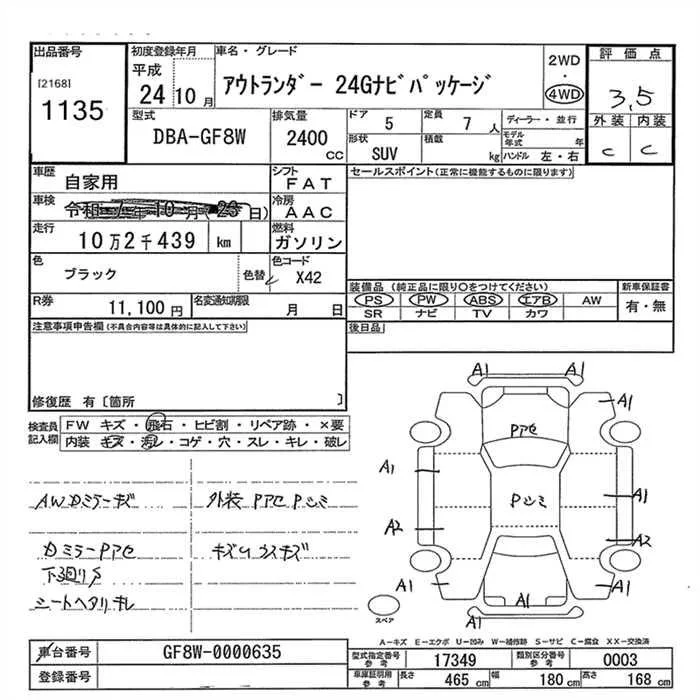 出品番号
[2168]
1135
初度登録年月
平成
24 10 月
車名・グレード
アウトランダー 24Gナビパッケージ
2WD
・
4WD
評価点
3,5
外装 内装
C C
型式
DBA-GF8W
排気量
2400
cc
ドア
5
定員
7 人
形状
SUV
積載
kg
ディーラー・並行
モデル年式 年
ハンドル 左・右
車歴
自家用
シフト
FAT
車検
令和 7年 10月( 日)
冷房
AAC
走行
10万2千439 km
燃料
ガソリン
色
ブラック
色替
色コード
X42
R券
11,100円
名変通知期限
月 日
セールスポイント(正常に機能するものに限ります)
装備品 (純正品に限り○をつけてください)
PS PW ABS エアB AW
SR ナビ TV カワ
新車保証書
有・無
後日品
注意事項申告欄(不具合内容等は具体的に記入して下さい)
修復歴 有〔箇所 〕
検査員記入欄
FW キズ・飛石・ヒビ割・リペア跡・×要
内装 キズ・汚レ・コゲ・穴・スレ・キレ・破レ
AWDミラーキズ
外装 Pアセ Pシミ
DミラーPアセ
キズUコスキズ
下廻りS
シートヘタリキレ
A1
A1 A1
Pアセ
A1 Pシミ A1
A2 A2
A1 A1 A1
A1
スペア
A-キズ E-エクボ U-凹み W-補修跡 S-サビ C-腐食 XX-交換済
車台番号
GF8W-0000635
登録番号
型式指定番号 参考
17349
類別区分番号 参考
0003
車庫証明用 参考
長さ 465 cm
幅 180 cm
高さ 168 cm